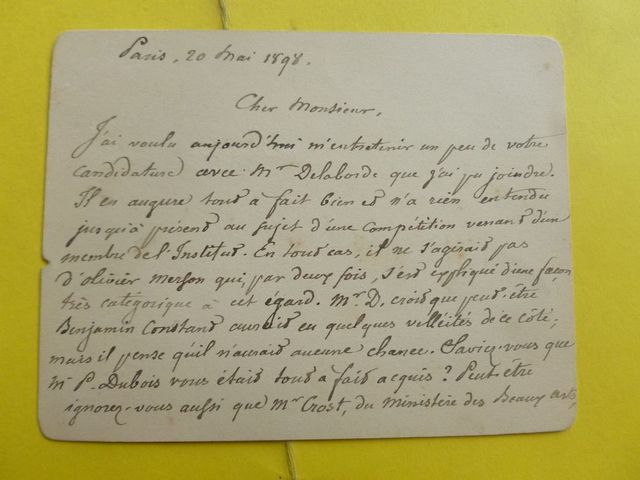 Paris, 20 Mai 1898.
Cher Monsieur,
J'ai voulu aujourd'hui m'entretenir un peu de votre
candidature avec Mr Delaborde que j'ai pu joindre.
Il en augure tout à fait bien et n'a rien entendu
jusqu'à présent au sujet d'une compétition venant d'un
membre de l'Institut. En tout cas, il ne s'agirait pas
d'olivier Merson qui, par deux fois, s'est expliqué d'une façon
très catégorique à cet égard. Mr D. croit que peut-être
Benjamin Constant aurait eu quelques velléités de ce côté;
mais il pense qu'il n'aurait aucune chance. Saviez-vous que
Mr P. Dubois vous était tout à fait acquis? Peut-être
ignorez-vous aussi que Mr Crost, du Ministère des Beaux arts,